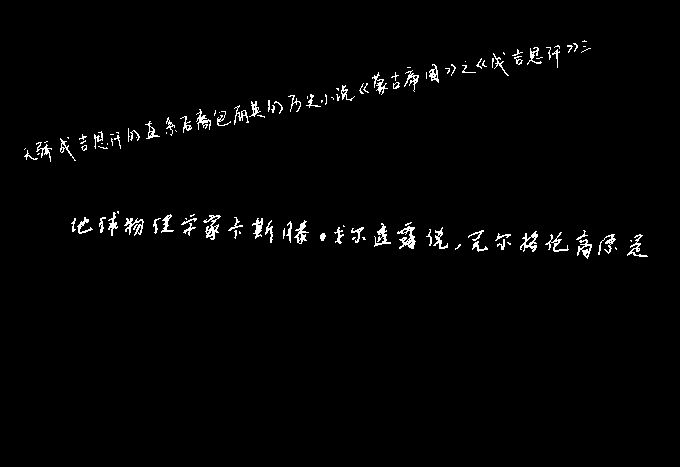 天骄成吉思汗的直系后裔包丽英的历史小说《蒙古帝国》之《成吉思汗》三
地球物理学家卡斯滕·戈尔透露说，克尔格伦高原是